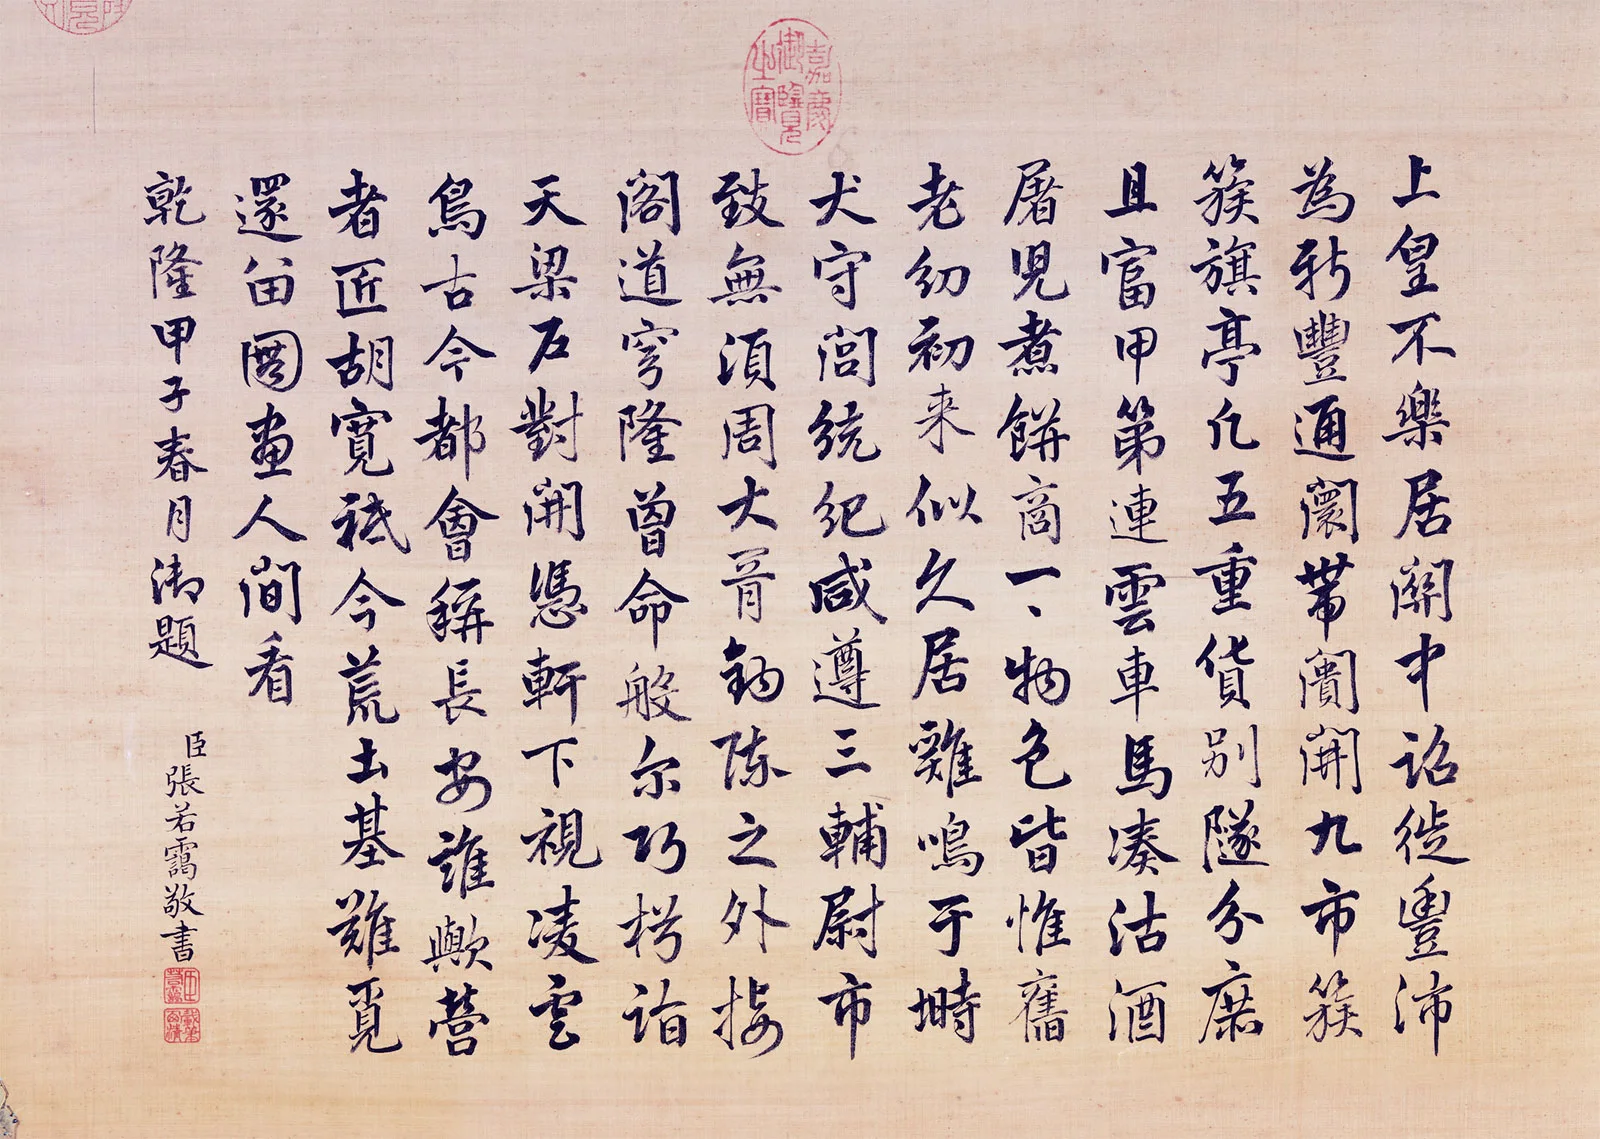 上皇不樂居關中詔徙豐沛
為新豐通闤帶闠開九市簇
簇旗亭凡五重貨別隧分廛
且富甲第連雲車馬湊沽酒
屠兒煮餅商一、物色皆惟舊
老幼初来似久居雞鳴于塒
犬守閭統紀咸遵三輔尉市
致無須周大胥鈎陳之外接
閣道穹隆曾命般尔巧枍詣
天梁互對開憑軒下視凌雲
鳥古今都會稱長安誰歟營
者匠胡寬祗今荒土基難覓
還留圖畫人間看
乾隆甲子春月御題
臣張若靄敬書
嘉慶御覽之寶